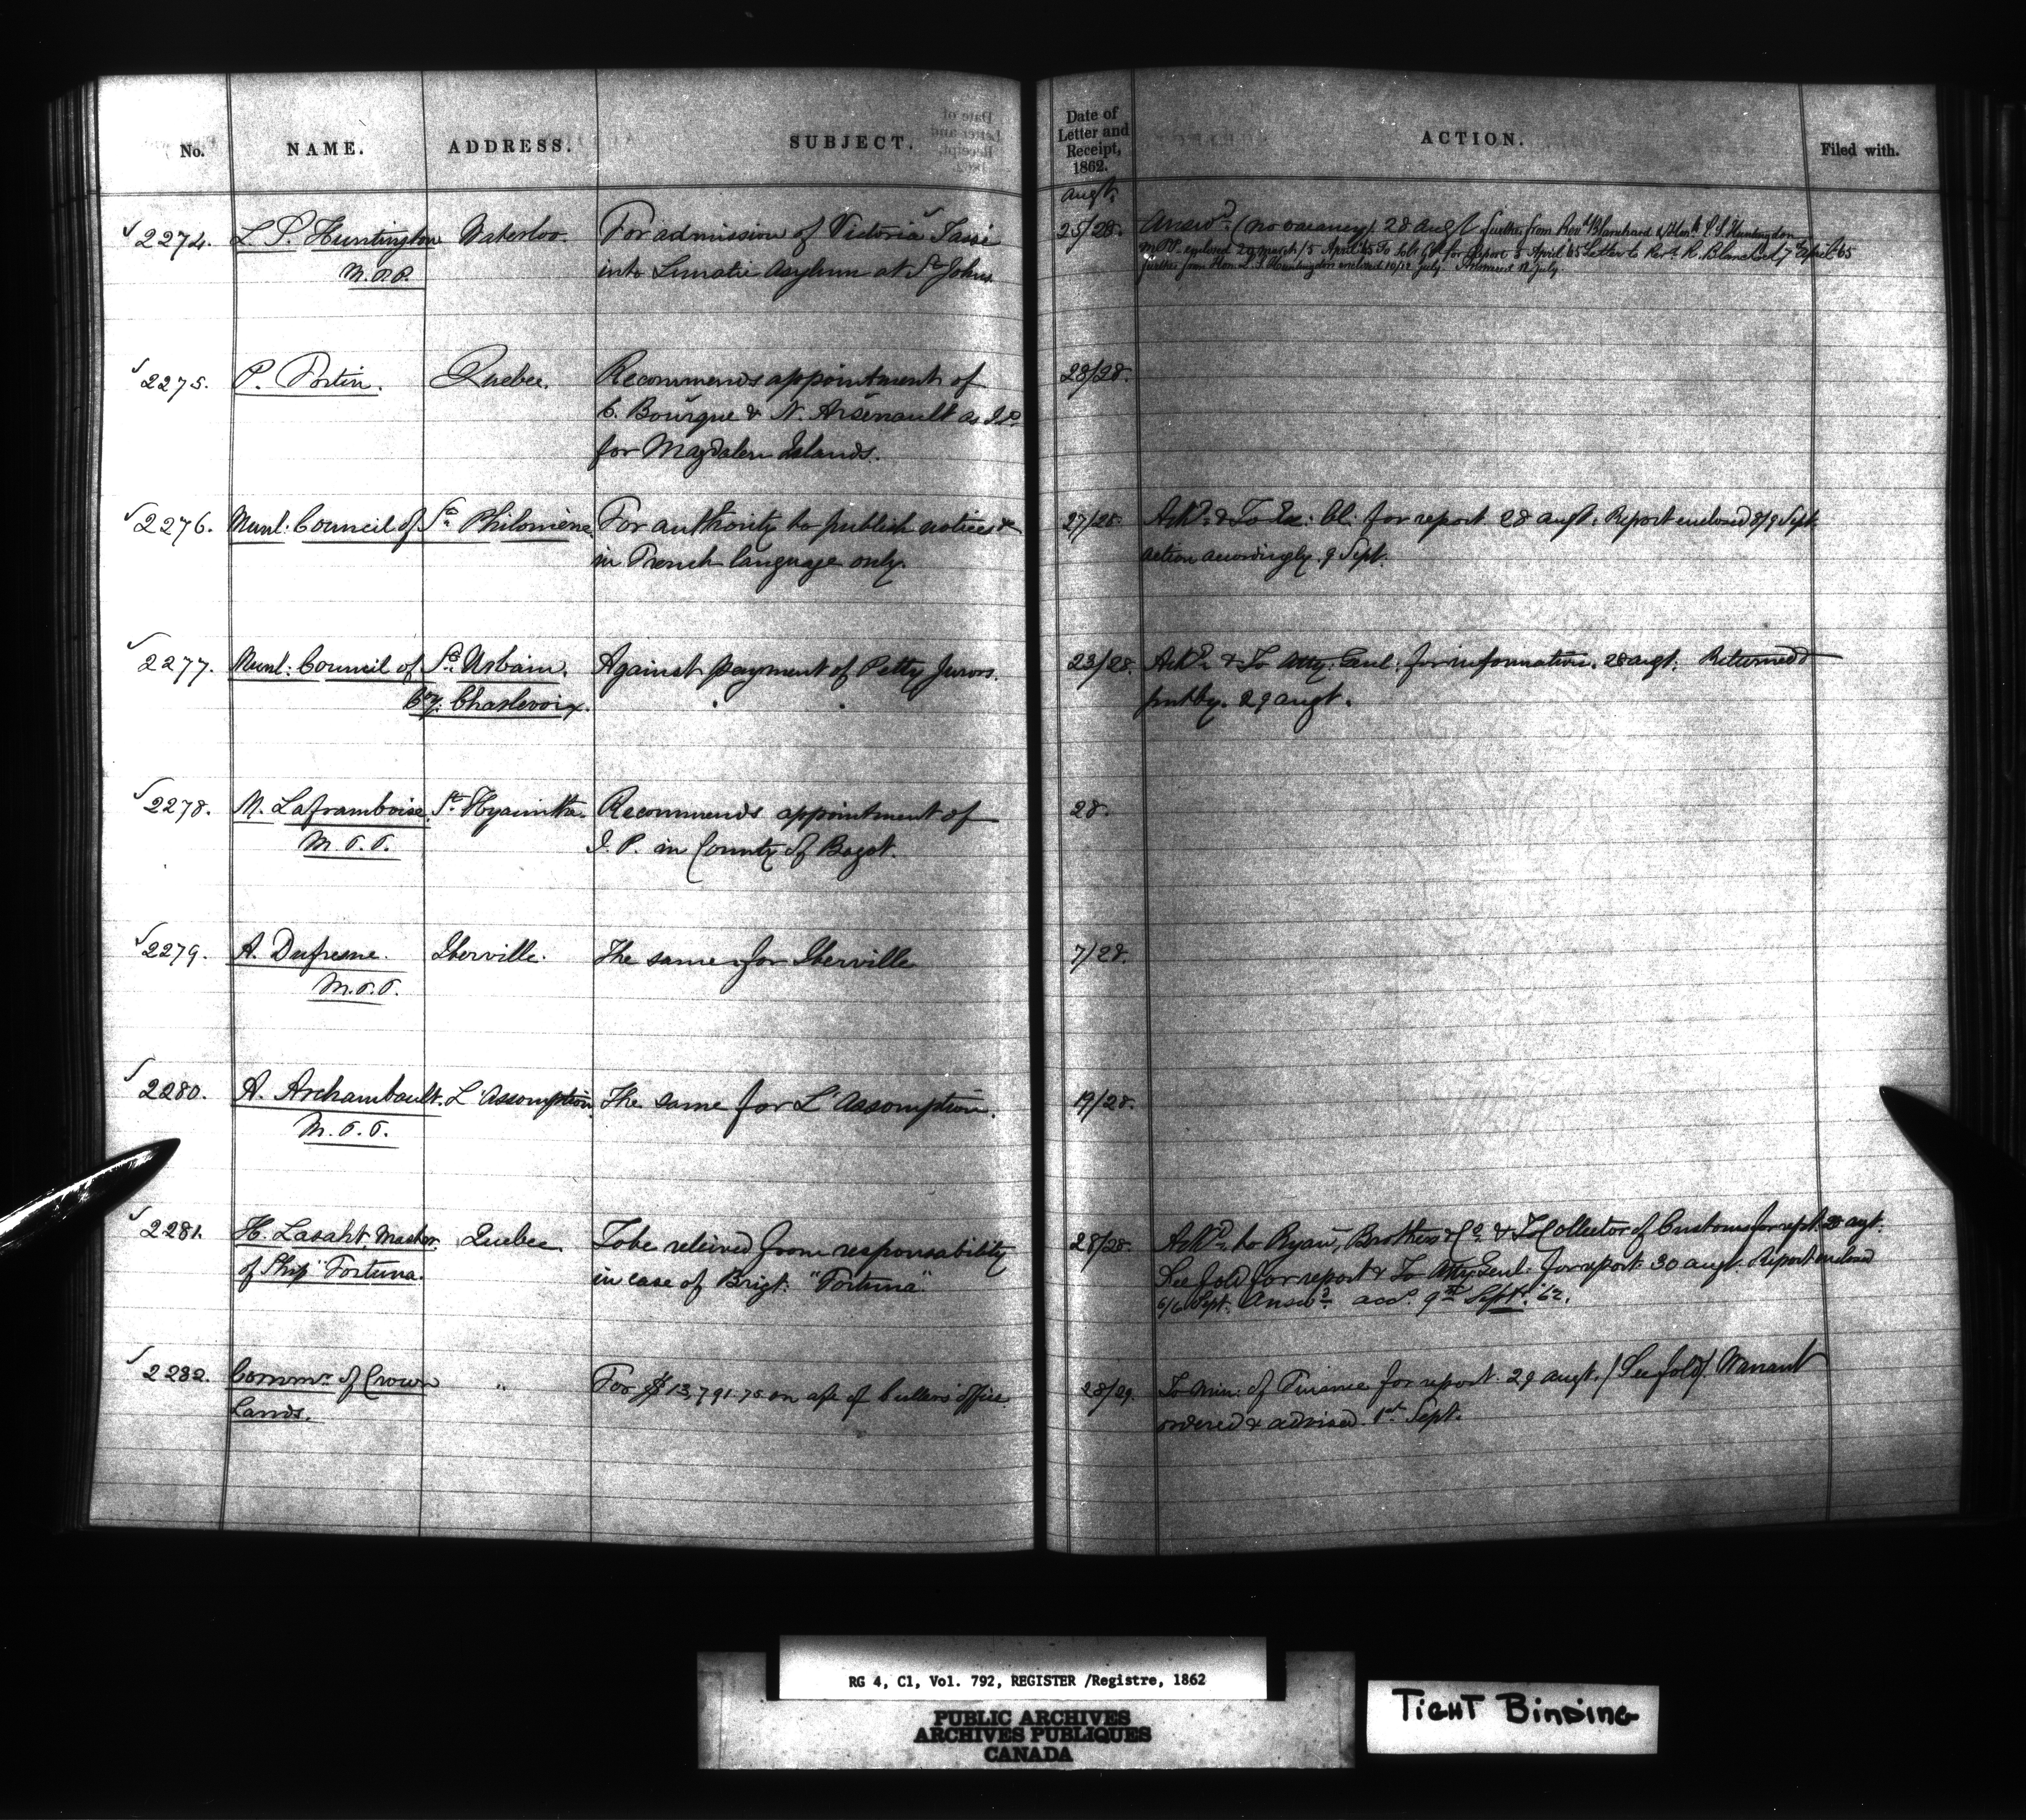 No. NAME. ADDRESS. SUBJECT. Date of Letter and Receipt, 1862. ACTION. Filed with.
Augt.
2274. L. S. Huntington Waterloo. For admission of Victoria Tassé 25/28. Answd. (no vacancy) 28 Augt. Further from Revd. Blanchard & Hon. L. S. Huntington
M.P.P. into Lunatic Asylum at St Johns M.P.P. enclosed 29 March/5 April 65 for Report 5 April 65 Letter to Revd. R. Blanchard 7 April 65
further from Hon. L. S. Huntington enclosed 10/12 July. Answered 12 July
2275. P. Fortin. Quebec. Recommends appointment of 28/28.
C. Bourque & N. Arsenault as J.P.
for Magdalen Islands.
2276. Munl: Council of Ste. Philomène For authority to publish notices &c 27/28. Ackd. & To Ex: Cl: for report 28 Augt. Report enclosed 8/9 Sept
in French language only. action accordingly. 9 Sept.
2277. Munl: Council of St. Urbain. Against payment of Petty Jurors. 23/28. Ackd. & To Atty. Genl. for information. 28 augt. Returned &
Coy. Charlevoix. put by. 29 augt.
2278. M. Laframboise. St. Hyacinthe. Recommends appointment of 28.
M.P.P. J. P. in County of Bagot.
2279. A. Dufresne. Iberville. The same for Iberville 7/28.
M.P.P.
2280. A. Archambault. L'Assomption. The same for L'Assomption. 19/28.
M.P.P.
2281. H. Master Quebec To be releived from responsability 28/28. Ackd. to Ryan, Brothers & Co. & To Collector of Customs for rept. 28 augt.
of Ship Fortuna. in case of Brigt. "Fortuna" See fold for report & To Atty Genl: for report 30 augt. Report enclosed
6/6 Sept. Answd. accd. 9th Sept. 62.
2282. Commr. of Crown " For $13,791.75 on a/c of Cullers office 28/29. To Min: of Finance for report. 29 augt. / See fold / Warrant
Lands. ordered & advised. 1st Sept.
RG 4, C1, Vol. 792, REGISTER /Registre, 1862
PUBLIC ARCHIVES
ARCHIVES PUBLIQUES
CANADA
TIGHT BINDING